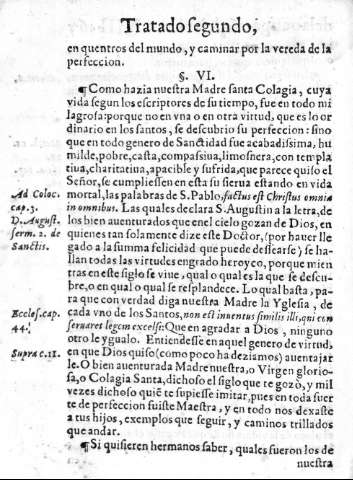 Tratado segundo,
en quentros del mundo, y caminar por la vereda de la
perfeccion.
§. VI.
¶Como hazia nuestra Madre santa Colagia, cuya
vida segun los escriptores de su tiempo, fue en todo mi
lagrosa: porque no en vna o en otra virtud, que es lo or
dinario en los santos, se descubrio su perfeccion: sino
que en todo genero de Sanctidad fue acabadissima, hu
milde, pobre, casta, compassiua, limosnera, con templa
tiua, charitatiua, apacible y sufrida, que parece quiso el
Señor, se cumpliessen en esta su sierua estando en vida
mortal, las palabras de S. Pablo, factus est Christus omnia
in omnibus. Las quales declara S. Augustin a la letra, de
los bien auenturados que enel cielo gozan de Dios, en
quienes tan solamente dize este Doctor, (por hauer lle
gado a la summa felicidad que puede dessearse) se ha-
llan todas las virtudes en grado heroyco, porque mien
tras en este siglo se viue, qual o qual es la que se descu-
bre, o en qual o qual se resplandece. Lo qual basta, pa-
ra que con verdad diga nuestra Madre la Yglesia, de
cada vno de los Santos, non est inuentus similis illi, qui con
seruaret legem excelsi: Que en agradar a Dios, ninguno
otro le ygualo. Entiendesse en aquel genero de virtud,
en que Dios quiso (como poco ha deziamos) auentajar
le. O bien auenturada Madre nuestra, o Virgen glorio-
sa, o Colagia Santa, dichoso el siglo que te gozò, y mil
vezes dichoso quiẽ te supiesse imitar, pues en toda suer
te de perfeccion fuiste Maestra, y en todo nos dexaste
a tus hijos, exemplos que seguir, y caminos trillados
que andar.
¶Si quisieren hermanos saber, quales fueron los de
nuestra
Ad Coloc.
cap. 3.
D. August.
serm. 2. de
Sanctis.
Eccles. cap.
44.
Supra c. 11.